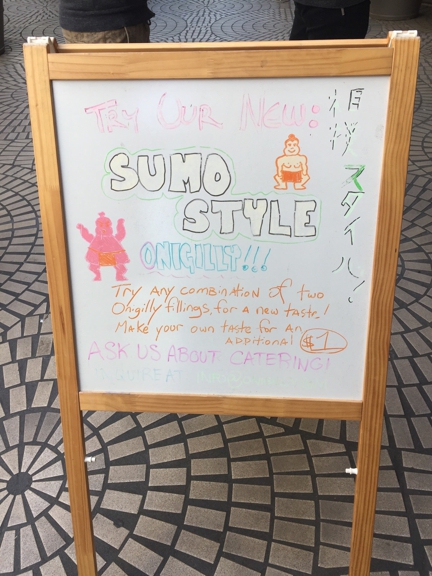 TRY OUR NEW:
SUMO
STYLE
ONIGILLY!!!
Try Any combination of two
Onigilly fillings, for a new taste!
Make your own taste for an
additional $1
ASK US ABOUT CATERING!
相撲スタイル!